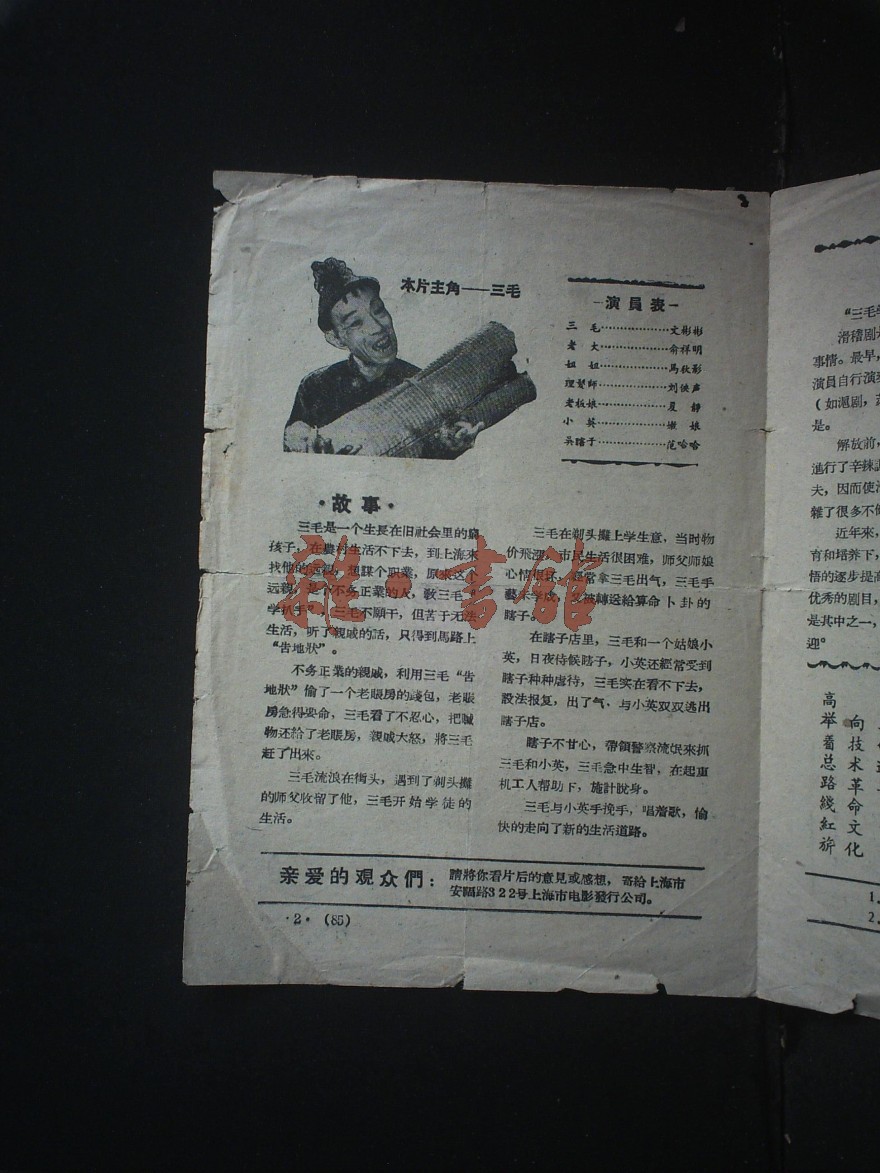 本片主角——三毛
—演員表—
三 毛··················文彬彬
老 大··················俞祥明
姐 姐··················馬秋影
理髮師··················刘俠声
老板娘··················夏 靜
小 英··················嫩 娘
吳瞎子··················范哈哈
·故事·
三毛是一个生長在旧社会里的窮
孩子，在農村生活不下去，到上海來
找他的远親，想謀个职業，原來这个
远親，是个不务正業的人，教三毛“
学扒手”，三毛不願干，但苦于无法
生活，听了親戚的話，只得到馬路上
“告地狀”。
不务正業的親戚，利用三毛“告
地狀”偷了一个老賬房的錢包，老賬
房急得要命，三毛看了不忍心，把贓
物还給了老賬房，親戚大怒，將三毛
赶了出來。
三毛流浪在街头，遇到了剃头攤
的师父收留了他，三毛开始学徒的
生活。
三毛在剃头攤上学生意，当时物
价飛漲，市民生活很困难，师父师娘
心情很坏，經常拿三毛出气，三毛手
藝未学成，又被轉送給算命卜卦的
瞎子。
在瞎子店里，三毛和一个姑娘小
英，日夜侍候瞎子，小英还經常受到
瞎子种种虐待，三毛实在看不下去，
設法报复，出了气，与小英双双逃出
瞎子店。
瞎子不甘心，帶領警察流氓來抓
三毛和小英，三毛急中生智，在起重
机工人帮助下，施計脫身。
三毛与小英手挽手，唱着歌，愉
快的走向了新的生活道路。
亲爱的观众們：
請將你看片后的意見或感想，寄給上海市
安福路322号上海市电影發行公司。
·2· (85)
“三毛学
滑稽剧是
事情。最早，
演員自行演
（如滬剧，
是。
解放前，
進行了辛辣
夫，因而使
雜了很多不
近年來，
育和培养下，
悟的逐步提高
优秀的剧目，
是其中之一，
迎。
高举着总路綫紅旂
向技术革命文化
1.
2.
雜·書館